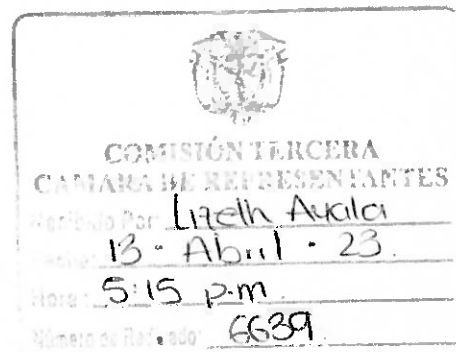 COMISIÓN TERCERA
CAMARA DE REPRESENTANTES
Recibido Por: Lizeth Ayala
Fecha: 13 - Abril - 23.
Hora: 5:15 p.m.
Número de Radicado: 6639